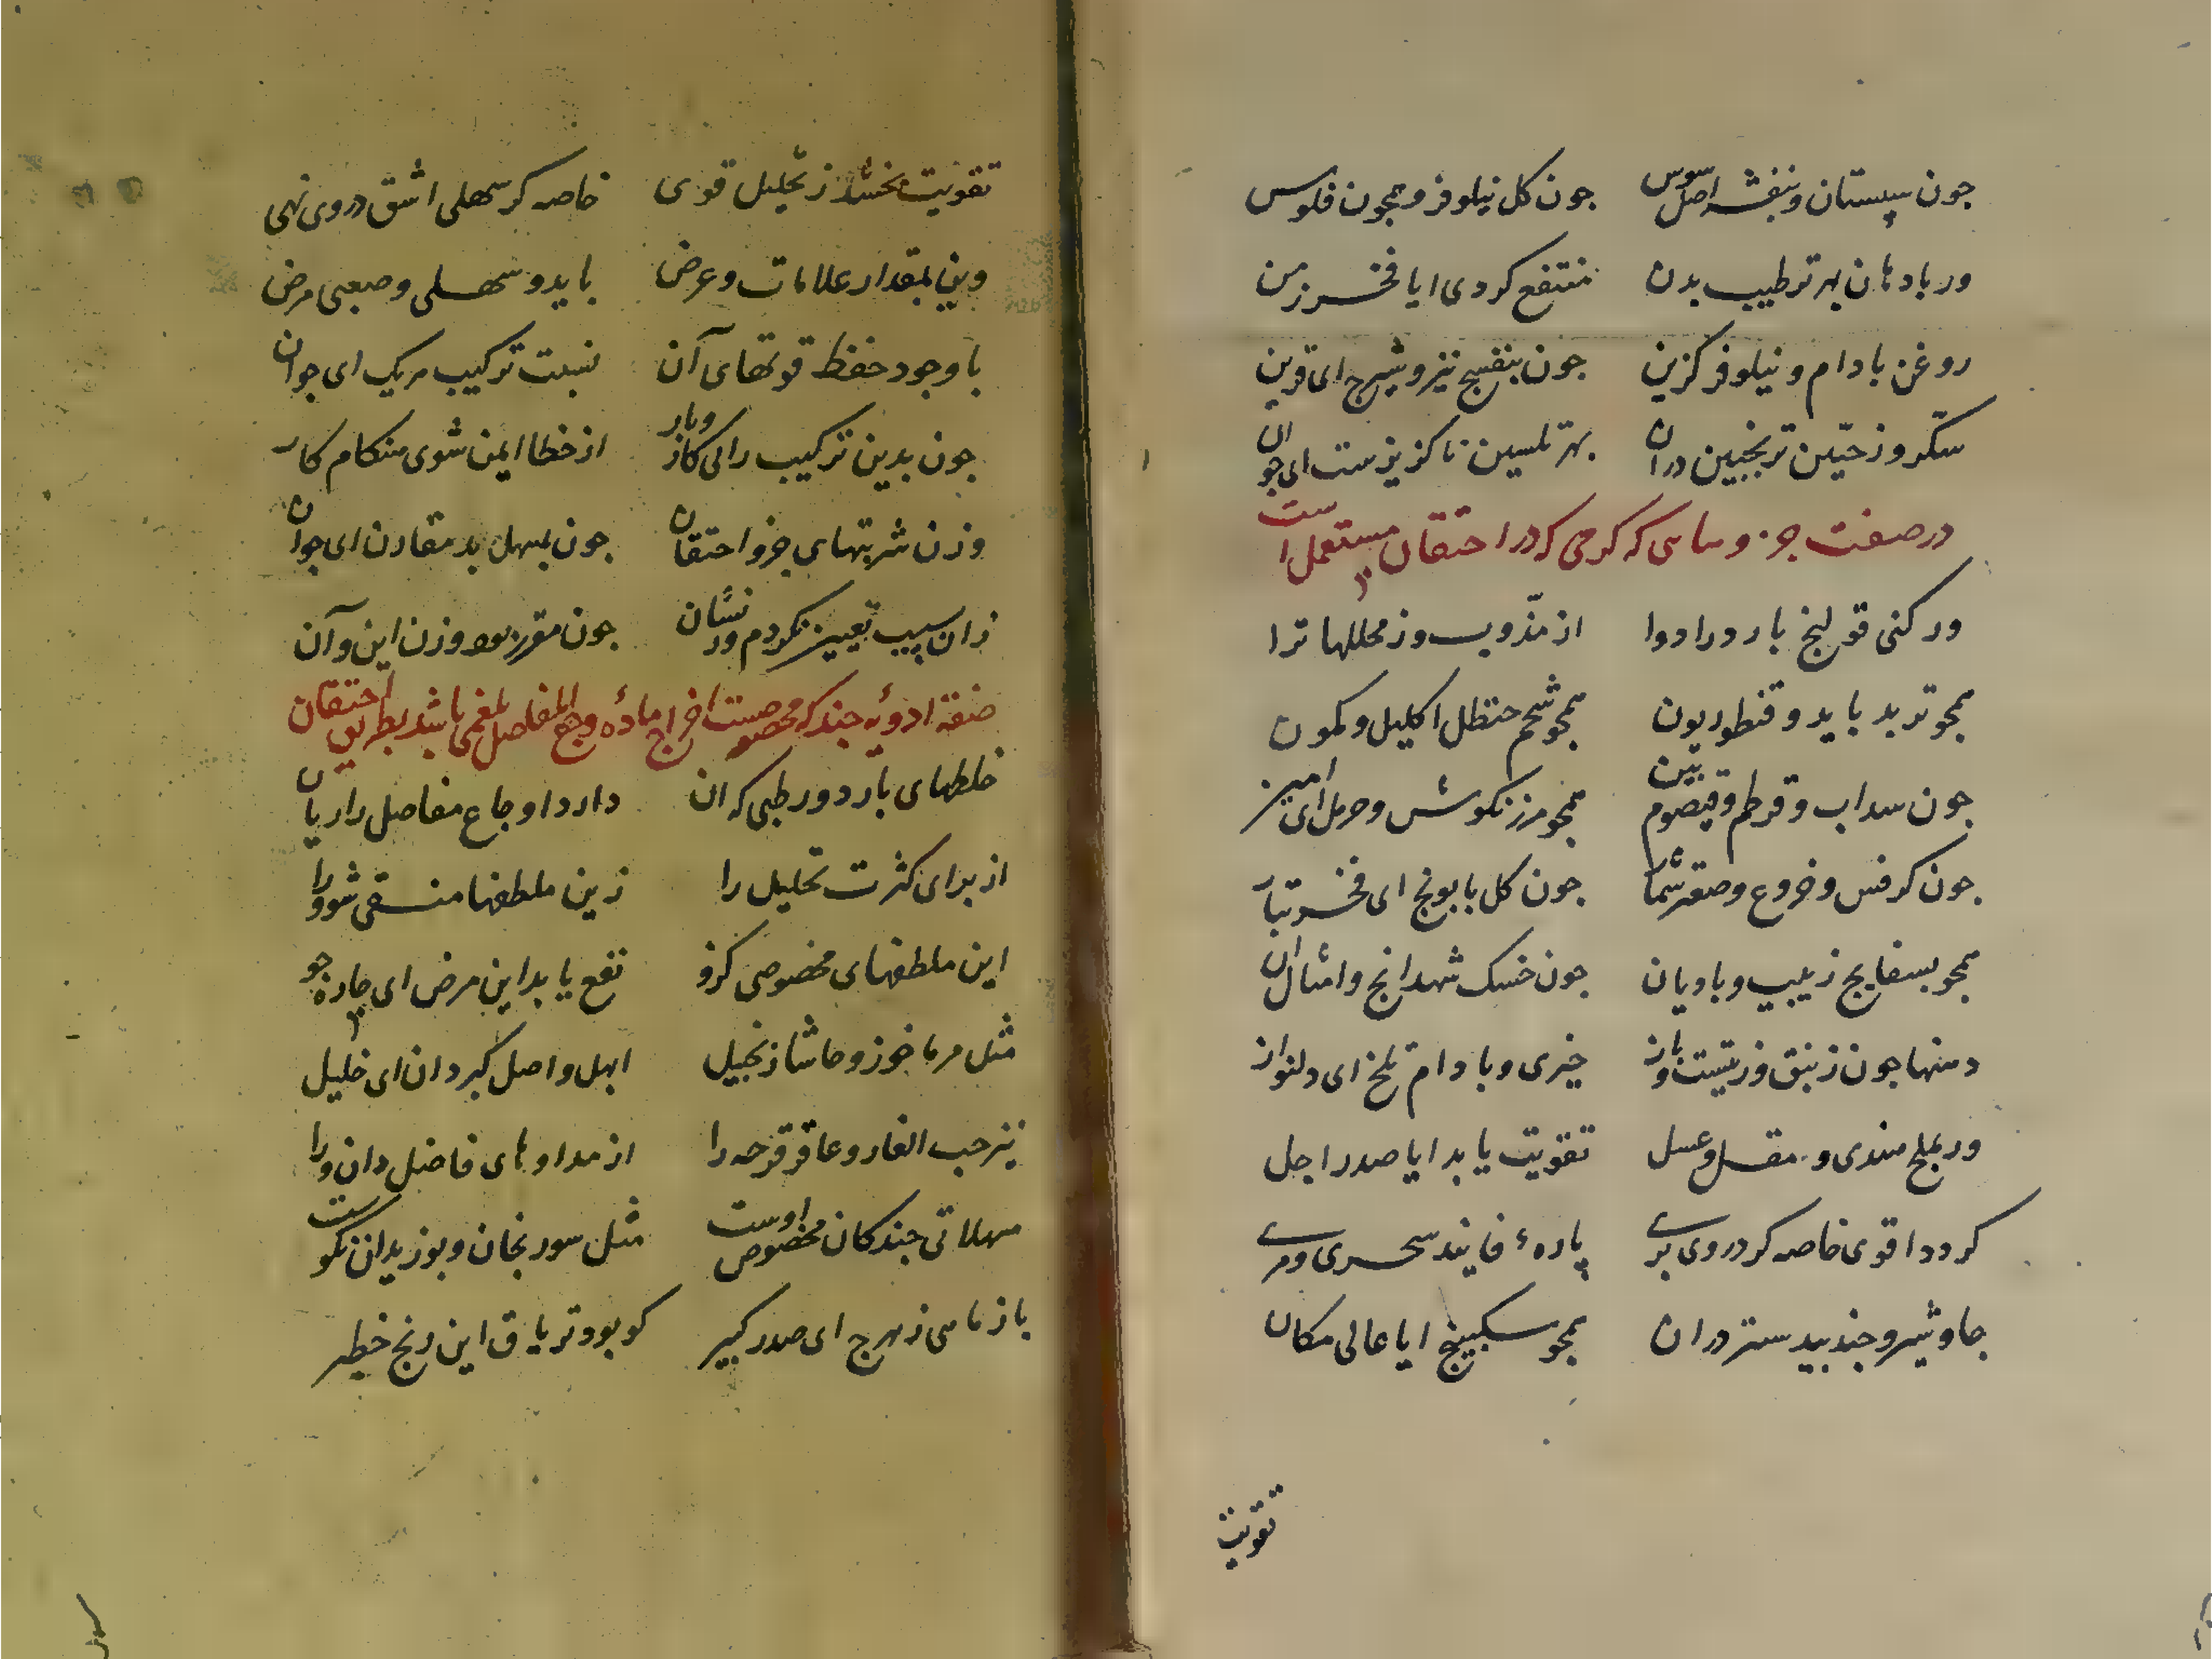 جون سپستان و بنفشه اصل سوس جون کل نیلوفر و همجون فلوس
ور باد هان بهر ترطیب بدن منتفع کردی ایا فخر زمن
روغن بادام و نیلوفر کزین جون بنفسج نیز و شیرج ای قرین
سکر و زجین ترنجبین دران بهر تلیین ناکزیزست ای جوان
در صفت که در احتقان مستعمل است
ور کنی قولنج بارد را دوا از مذوب وز محللها ترا
همجو تربد باید و قنطوریون همجو شحم حنظل اکلیل و کمون
جون سداب و قرطم و قیصوم بین همجو مرزنکوش و حرمل ای امیز
جون کرفس و خروع و صعتر شمار جون کل بابونج ای فخر تبار
همجو بسفایج زبیب و بادیان جون خسک شهدانج و امثال ان
دهنها جون زنبق و زیتست و ناز خیری و بادام تلخ ای دلنواز
ور بملح هندی و مقل و عسل تقویت یابد ایا صدر اجل
کردد اقوی خاصه کر دروی بری پاره فانید سحری و مری
جاوشیر و جندبیدستر دران همجو سکبینج ایا عالی مکان
تقویت
تقویت بخشد ز تحلیل قوی خاصه کر سهلی اشق دروی نهی
وین بمقدار علامات و عرض باید و سهلی و صعبی مرض
با وجود حفظ قوتهای آن نسبت ترکیب هریک ای جوان
جون بدین ترکیب رانی کاروبار از خطا ایمن شوی هنکام کار
وزن شربتهای جزو احتقان جون بمسهل بد مقارن ای جوان
زان سبب تعیین نکردم ور نشان جون مقرر بود وزن این و آن
صفة ادویه جند که مخصوصست اخراج ماده وجع المفاصل بلغمی باشد بطریق احتقان
خلطهای بارد و رطبی که ان دارد اوجاع مفاصل را زیان
از برای کثرت تحلیل را زین ملطفها منقی شو ورا
این ملطفهای مخصوصی کزو نفع یابد این مرض ای چاره جو
مثل مرماخوز و حاشا زنجبیل ابهل و اصل کبر دان ای خلیل
نیز حب الغار و عاقرقرحه را از مداوهای فاضل دان ورا
مهلاتی جند کان مخصوص اوست مثل سورنجان و بوزیدان نکوست
باز ماهی زهرج ای صدر کبیر کو بود تریاق این رنج خطیر